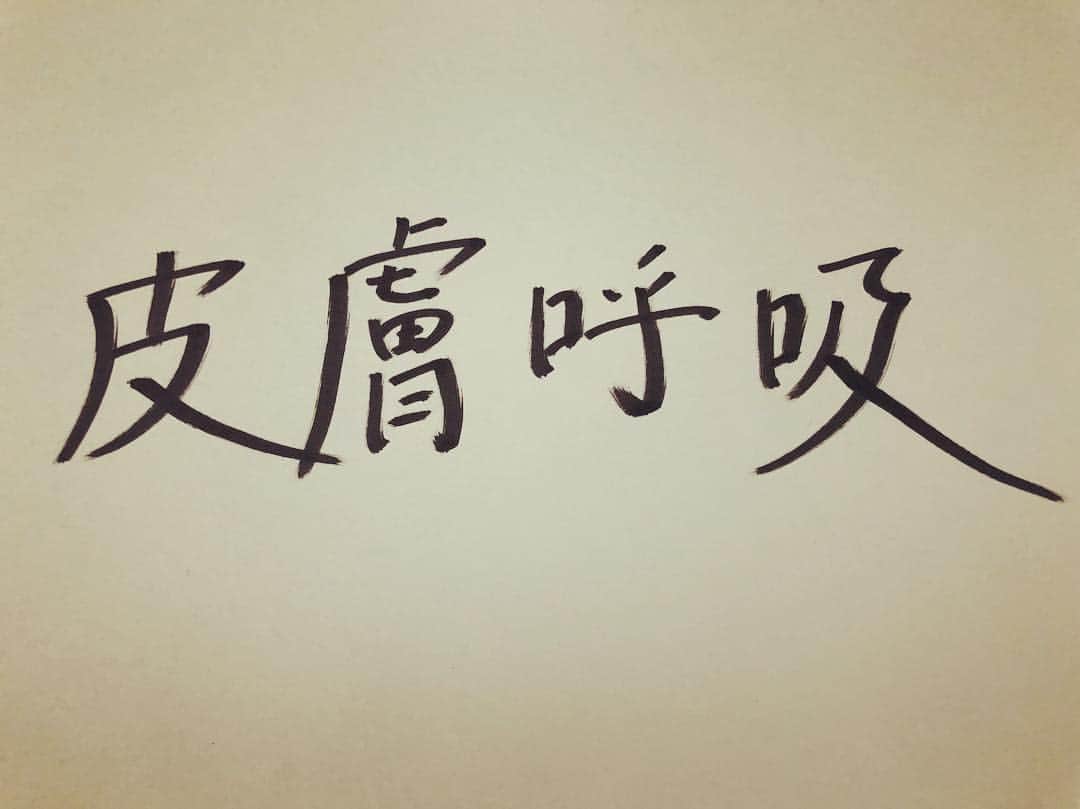 皮膚呼吸